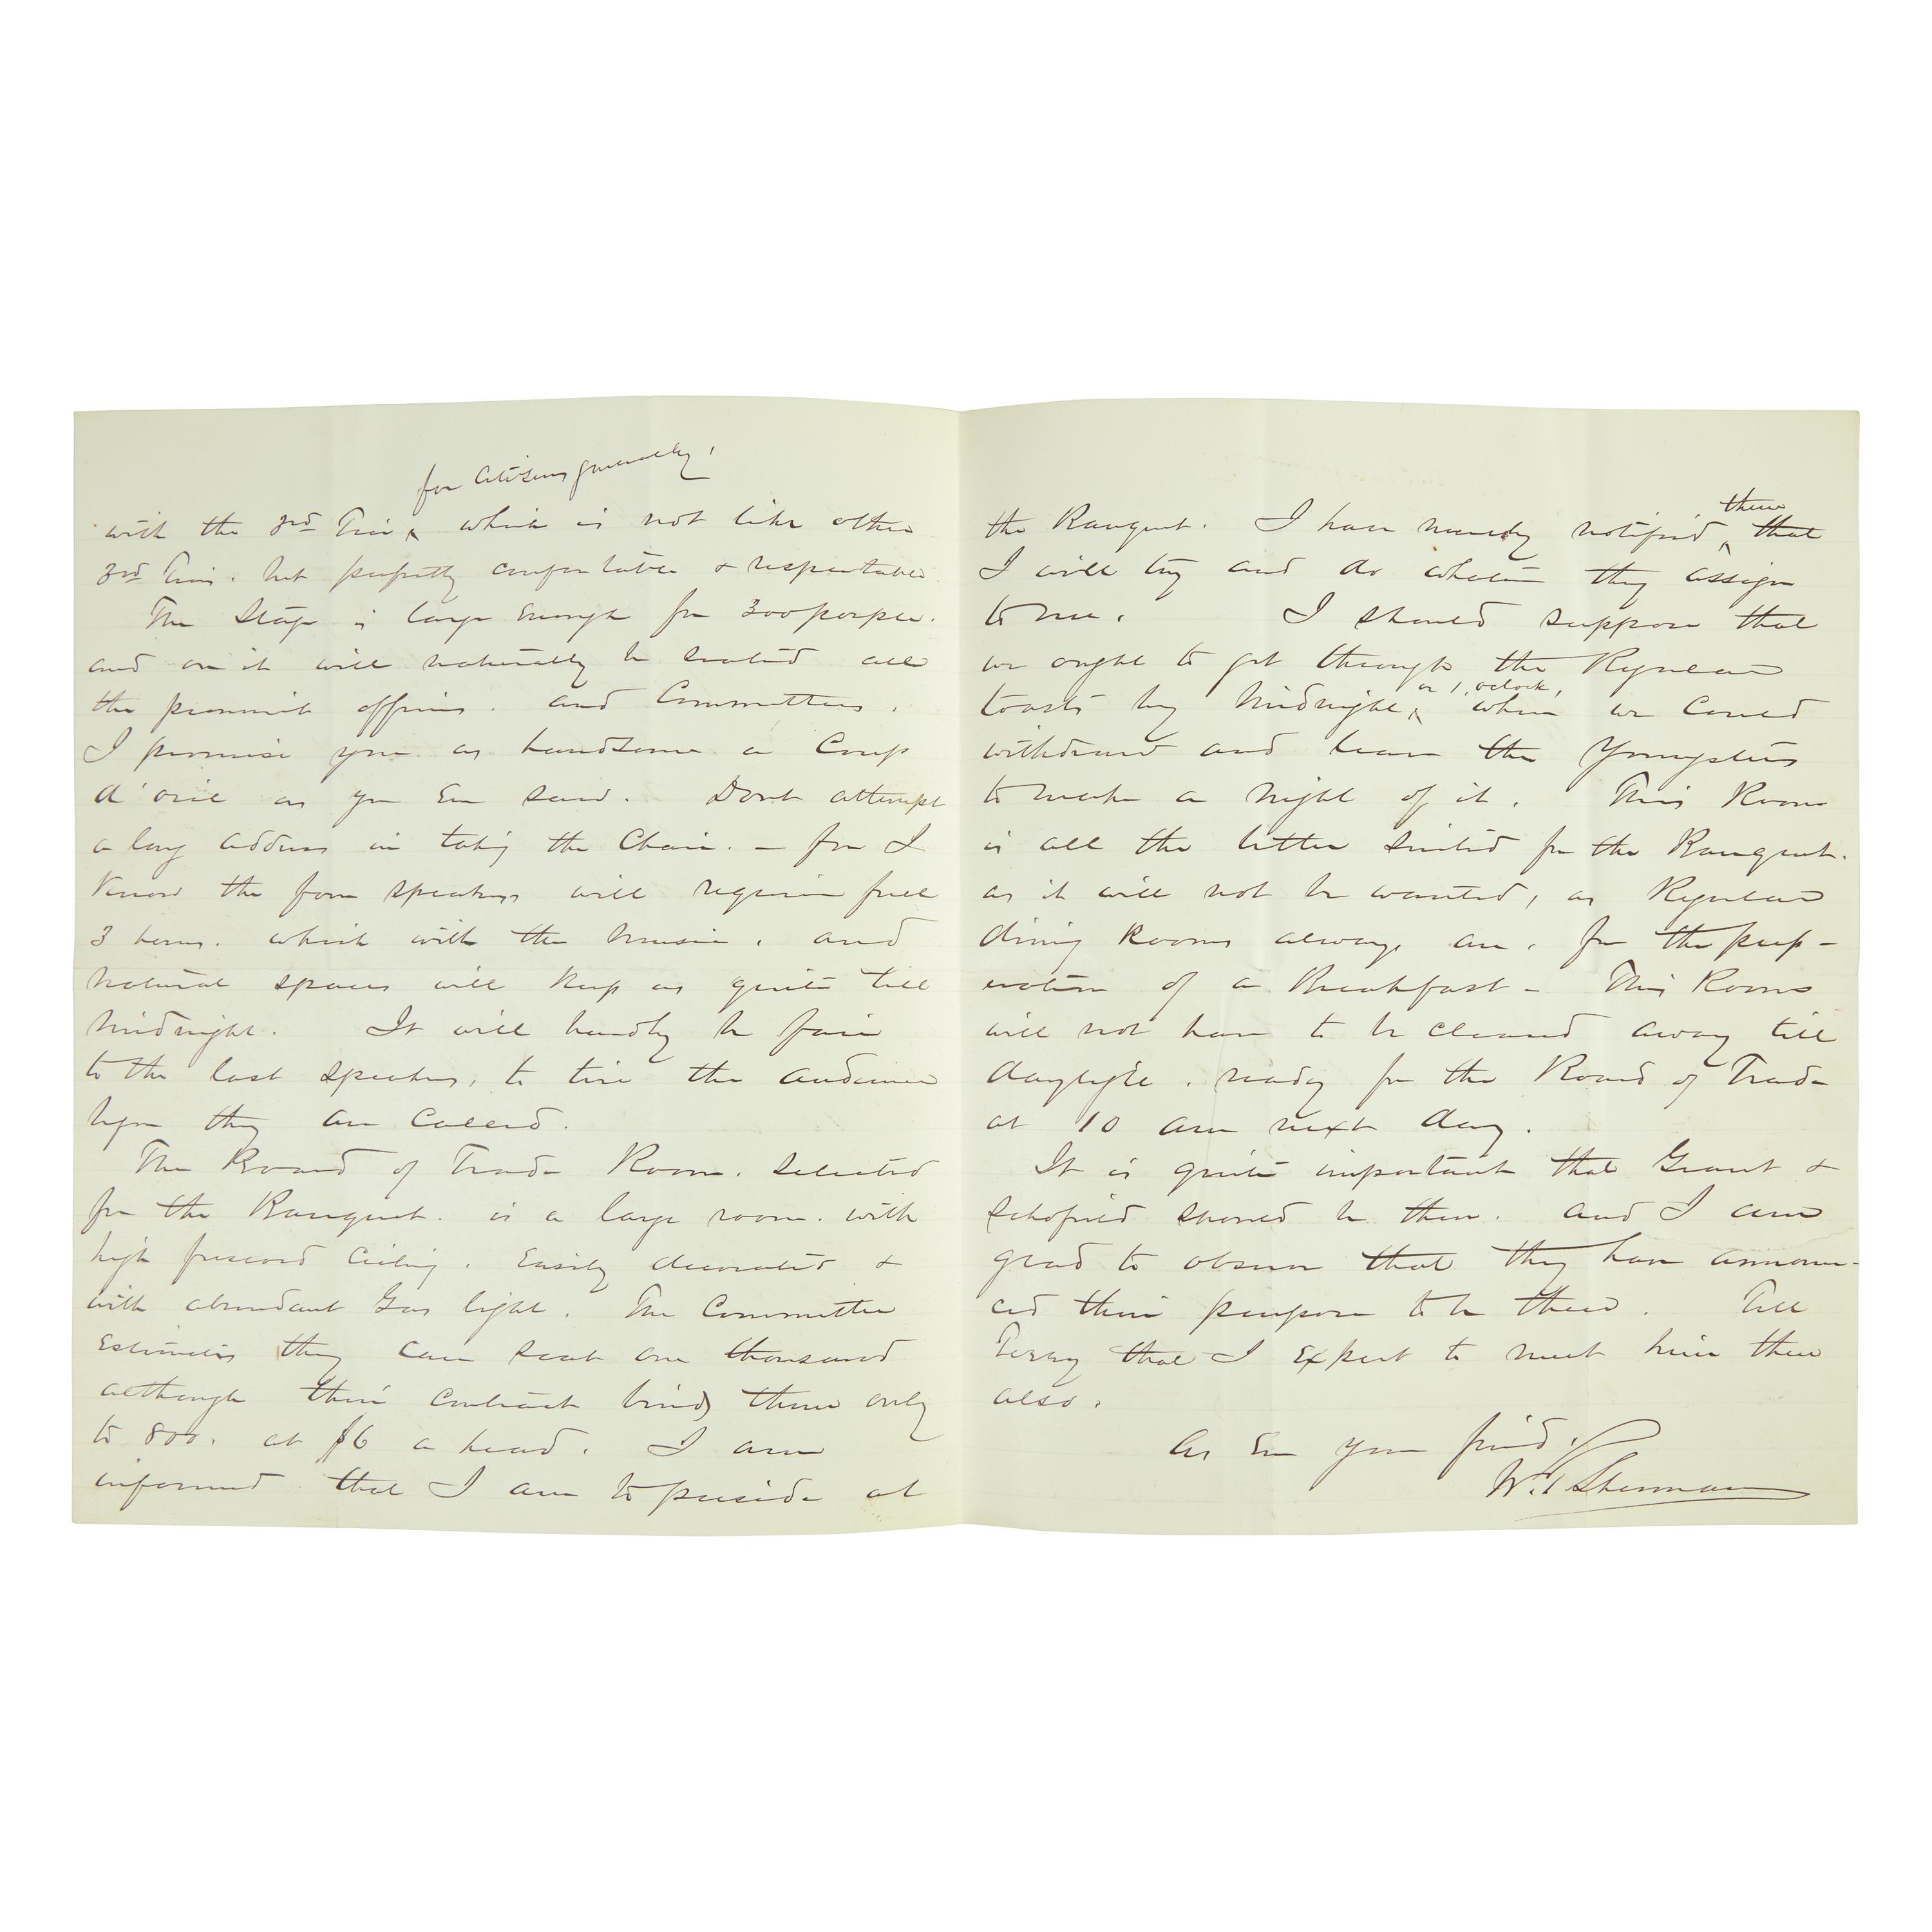 for Citizens generally,
with the 3rd Tier, which is not like other
3rd Tiers. but perfectly comfortable & respectable.
The Stage is large enough for 300 people.
and on it will naturally be seated all
the prominent officers. and Committees.
I promise you as handsome a Coup
d'oeil as you ever saw. Dont attempt
a long address in taking the Chair. - for I
Know the four speakers will require full
3 hours. which with the music, and
natural spaces will keep us quite till
midnight. It will hardly be fair
to the last speakers, to tire the audience
before they are called.
The Board of Trade Room. selected
for the Banquet. is a large room. with
high frescoed Ceiling. Easily decorated &
with abundant Gas light. The Committee
Estimates they can seat one thousand
although their contract binds them only
to 800. at $6 a head. I am
informed that I am to preside at
the Banquet. I have merely notified them that
I will try and do whatever they assign
to me. I should suppose that
we ought to get through the Regular
toasts by Midnight, or 1. oclock, when we could
withdraw and leave the Youngsters
to make a night of it. This Room
is all the better suited for the Banquet.
as it will not be wanted, as Regular
dining Rooms always are. for the prep-
aration of a Breakfast - This Room
will not have to be cleared away till
daylight. ready for the Board of Trade
at 10 am next day.
It is quite important that Grant &
Schofield should be there. and I am
glad to observe that they have announ-
ced their purpose to be there. Tell
Terry that I Expect to meet him there
also.
As Ever your friend,
W. T. Sherman